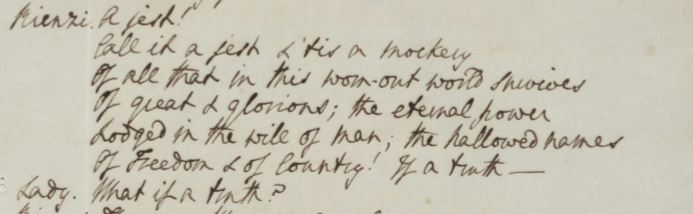 Rienzi. A jest!
Call it a jest & 'tis a mockery
Of all that in this worn-out world survives
Of great & glorious; the eternal power
Lodged in the will of Man; the hallowed names
Of Freedom & of Country! If a truth —
Lady. What if a truth?